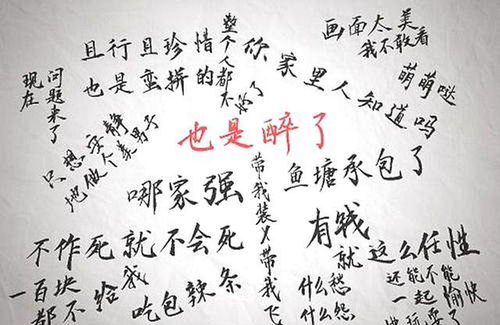 且行且珍惜
也是蛮拼的
整个人都不好了
你家里人知道吗
画面太美
我不敢看
萌萌哒
现在
问题来了
只想安静
地做个美男子
也是醉了
哪家强
带我装X带我飞
鱼塘承包了
不作死就不会死
有钱
就这么任性
一百块
都不给我
吃包辣条
什么愁
什么怨
还能不能
一起愉快